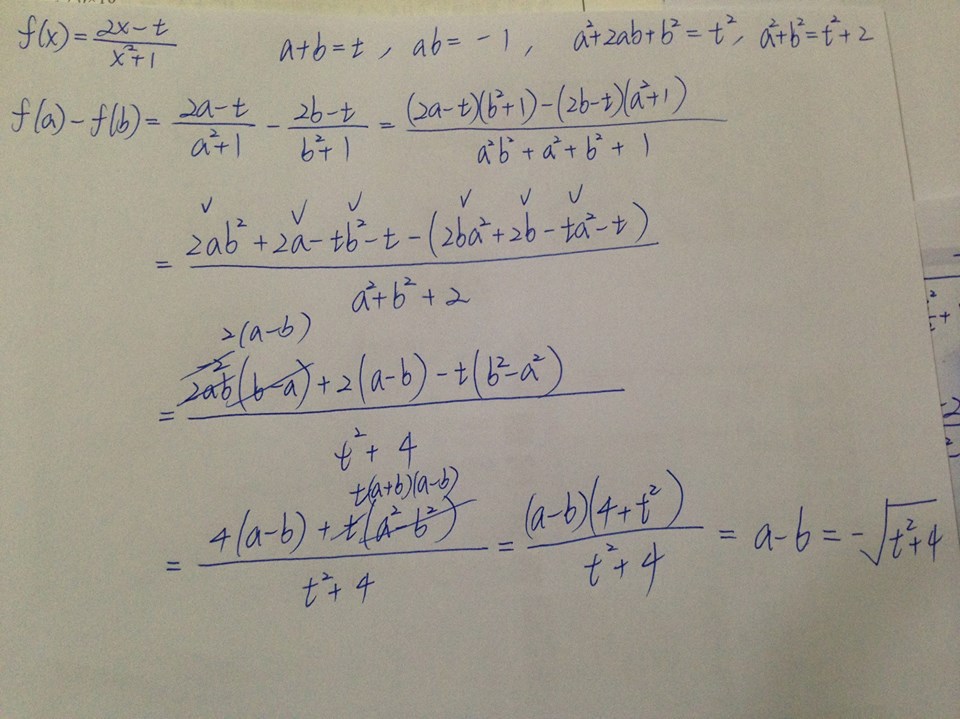 f(x) = (2x-t)/(x²+1)    a+b=t , ab=-1 , a²+2ab+b²=t², a²+b²=t²+2
f(a)-f(b) = (2a-t)/(a²+1) - (2b-t)/(b²+1) = ((2a-t)(b²+1)-(2b-t)(a²+1))/(a²b²+a²+b²+1)
✓ ✓ ✓ ✓ ✓ ✓
= (2ab²+2a-tb²-t-(2ba²+2b-ta²-t))/(a²+b²+2)
2(a-b)
-2
= (2ab(b-a)+2(a-b)-t(b²-a²))/(t²+4)
t(a+b)(a-b)
= (4(a-b)+t(a²-b²))/(t²+4) = ((a-b)(4+t²))/(t²+4) = a-b = -√(t²+4)